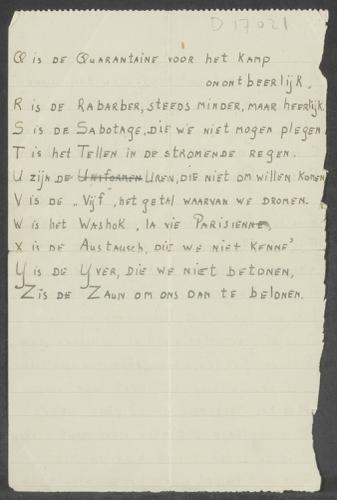 D 17021
Q is de Quarantaine voor het kamp
onontbeerlijk,
R is de Rabarber, steeds minder, maar heerlijk.
S is de Sabotage, die we niet mogen plegen
T is het Tellen in de stromende regen.
U zijn de Uniformen Uren, die niet om willen komen
V is de "Vijf", het getal waarvan we dromen.
W is het Washok, la vie Parisienne,
X is de Austausch, die we niet kenne'
Y is de Yver, die we niet betonen,
Z is de Zaun om ons dan te belonen.